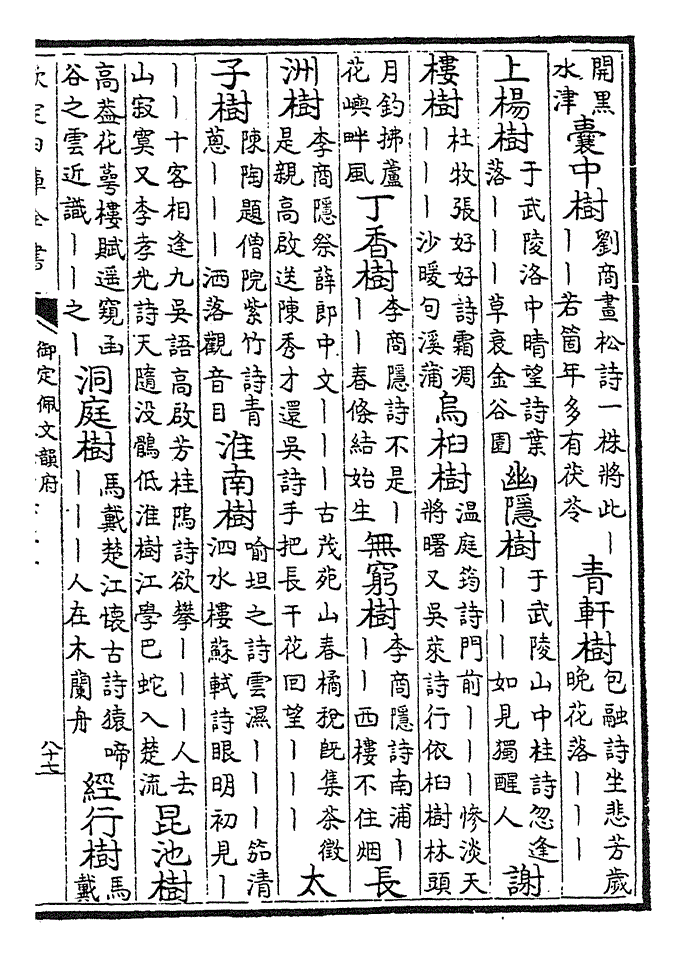 開黑水津囊中樹劉商畫松詩一株將此｜｜｜若箇年多有茯苓青軒樹包融詩坐悲芳歲晚花落｜｜｜
上楊樹于武陵洛中晴望詩葉落｜｜｜草衰金谷園幽隱樹于武陵山中桂詩忽逢｜｜｜如見獨醒人謝
樓樹杜牧張好好詩霜凋｜｜｜沙暖句溪蒲烏桕樹溫庭筠詩門前｜｜｜慘淡天將曙又吳萊詩行依桕樹林頭
月釣拂蘆花嶼畔風丁香樹李商隱詩不是｜｜｜春條結始生無窮樹李商隱詩南浦｜｜｜西樓不住烟長
洲樹李商隱祭薛郎中文｜｜｜古茂苑山春橘稅旣集茶徵是親高啟送陳秀才還吳詩手把長干花回望｜｜｜太
子樹陳陶題僧院紫竹詩青蔥｜｜｜洒落觀音目淮南樹喻坦之詩雲濕｜｜｜笳清泗水樓蘇軾詩眼明初見｜
｜｜十客相逢九吳語高啟芳桂隖詩欲攀｜｜｜人去山寂寞又李孝光詩天隨没鶻低淮樹江學巴蛇入楚流昆池樹
高蓋花萼樓賦遥窺函谷之雲近識｜｜之｜洞庭樹馬戴楚江懷古詩猿啼｜｜｜人在木蘭舟經行樹馬戴
欽定四庫全書 御定佩文韻府 八十七